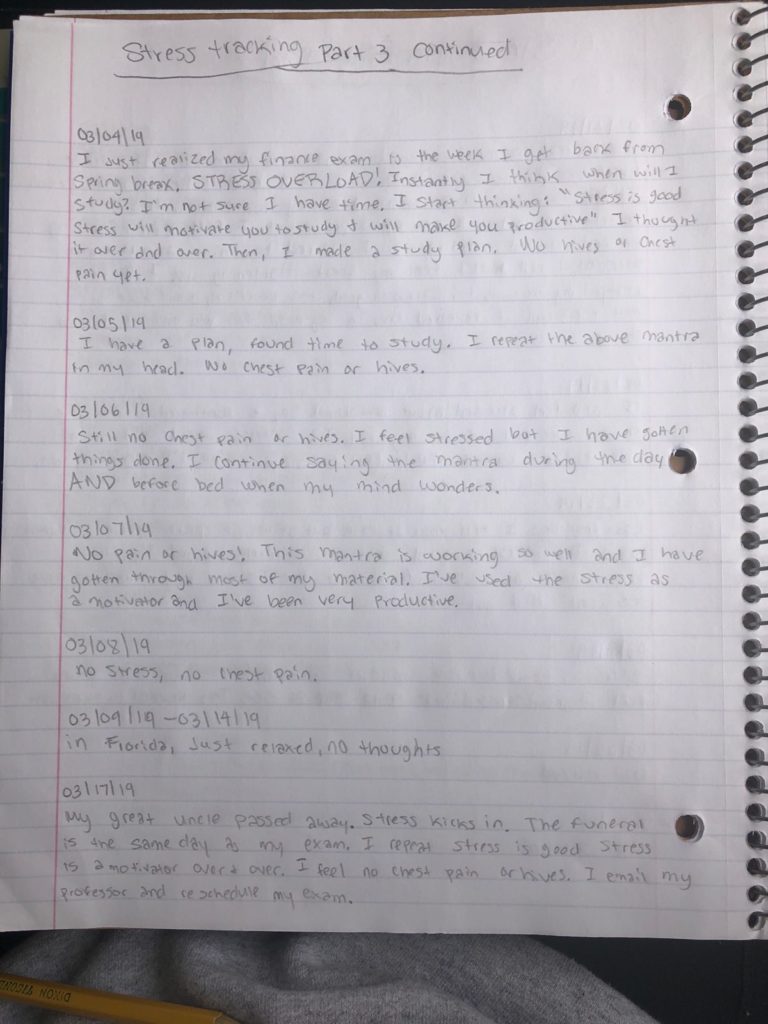 Stress tracking Part 3 Continued
03/04/19
I Just realized my finance exam is the week I get back from
Spring break. STRESS OVERLOAD! Instantly I think when will I
Study? I'm not sure I have time. I start thinking: "Stress is good
Stress will motivate you to study & will make you productive" I thought
it over and over. Then, I made a study plan. No hives or Chest
pain yet.
03/05/19
I have a plan, found time to study. I repeat the above mantra
in my head. No Chest Pain or hives.
03/06/19
Still no Chest pain or hives. I feel stressed but I have gotten
things done. I continue saying the mantra during the day
AND before bed when my mind wonders.
03/07/19
No pain or hives! This mantra is working so well and I have
gotten through most of my material. I've used the stress as
a motivator and I've been very productive.
03/08/19
no stress, no chest pain.
03/09/19 - 03/14/19
in Florida, Just relaxed, no thoughts
03/17/19
My great uncle passed away. Stress kicks in. The funeral
is the same day as my exam. I repeat stress is good stress
is a motivator over & over. I feel no chest pain or hives. I email my
professor and reschedule my exam.
DIXON TICOND